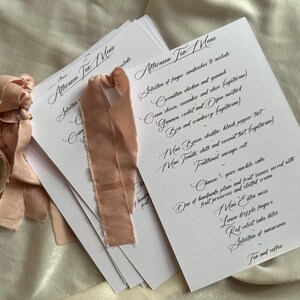 Afternoon Tea Menu
Selection of finger sandwiches to include
Coronation chicken and
Cream cheese, cucumber and chive (vegetarian)
Gammon rocket and Dijon mustard
Brie and cranberry (vegetarian)
~
Mini Bacon, cheddar, black pepper tart
Mini Tomato, chilli and tart (vegetarian)
Traditional sausage roll
~
Cheese
Duo of handmade plain and fruit scones served with
fruit preserves and clotted cream
~
Mini Eton mess
Lemon drizzle
Red velvet cake bites
Selection of macarons
~
Tea and coffee
Afternoon Tea Menu
Selection of